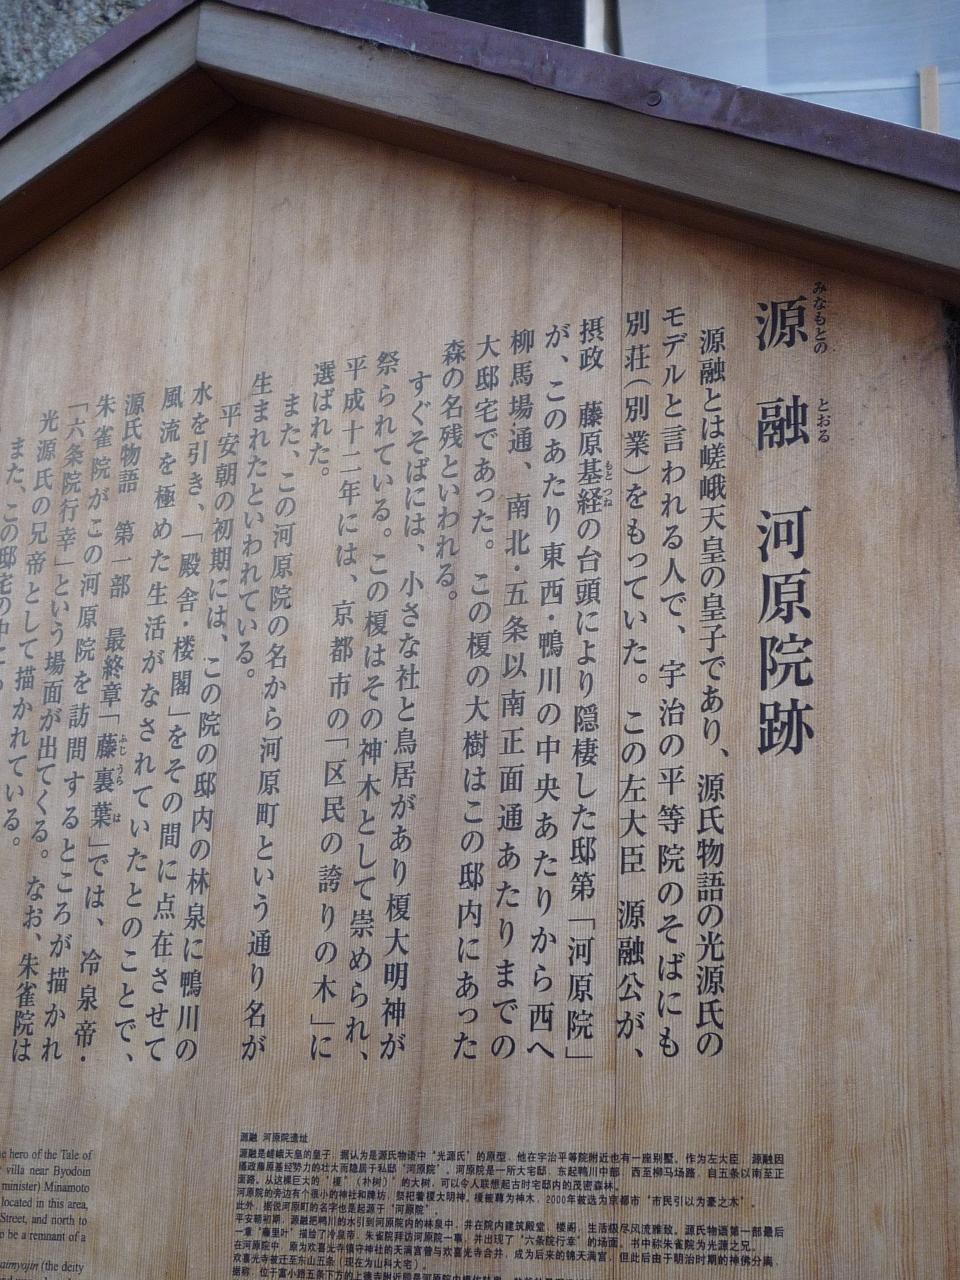 源 融 河原院跡
みなもとの とおる
源融とは嵯峨天皇の皇子であり、源氏物語の光源氏の
モデルと言われる人で、宇治の平等院のそばにも
別荘（別業）をもっていた。この左大臣 源融公が、
摂政 藤原基経の台頭により隠棲した邸第「河原院」
もとつね
が、このあたり東西・鴨川の中央あたりから西へ
柳馬場通、南北・五条以南正面通あたりまでの
大邸宅であった。この榎の大樹はこの邸内にあった
森の名残といわれる。
すぐそばには、小さな社と鳥居があり榎大明神が
祭られている。この榎はその神木として崇められ、
平成十二年には、京都市の「区民の誇りの木」に
選ばれた。
また、この河原院の名から河原町という通り名が
生まれたといわれている。
平安朝の初期には、この院の邸内の林泉に鴨川の
水を引き、「殿舎・楼閣」をその間に点在させて
風流を極めた生活がなされていたとのことで、
源氏物語 第一部 最終章「藤裏葉」では、冷泉帝・
ふじ うら は
朱雀院がこの河原院を訪問するところが描かれ
「六条院行幸」という場面が出てくる。なお、朱雀院は
光源氏の兄帝として描かれている。
また、この邸宅の中に
源融 河原院遗址
源融是嵯峨天皇的皇子，据认为是源氏物语中“光源氏”的原型，他在宇治平等院附近也有一座别墅。作为左大臣，源融因
河原院的旁边有个很小的神社和牌坊，祭祀着榎大明神。榎被尊为神木，2000年被选为京都市“市民引以为豪之木”。
此外，据说河原町的名字也是起源于“河原院”。
平安朝初期，源融把鸭川的水引到河原院内的林泉中，并在院内建筑殿堂、楼阁，生活极尽风流雅致。源氏物语第一部最后
一章“藤里叶”描绘了冷泉帝、朱雀院拜访河原院一事，并出现了“六条院行幸”的场面。书中称朱雀院为光源之兄。
e hero of the Tale of
villa near Byodoin
minister) Minamoto
located in this area,
Street, and north to
o be a remnant of a
aimyojin (the deity